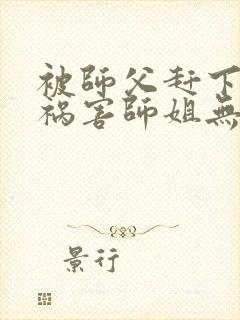 被師父赶下
祸害師姐無
景行